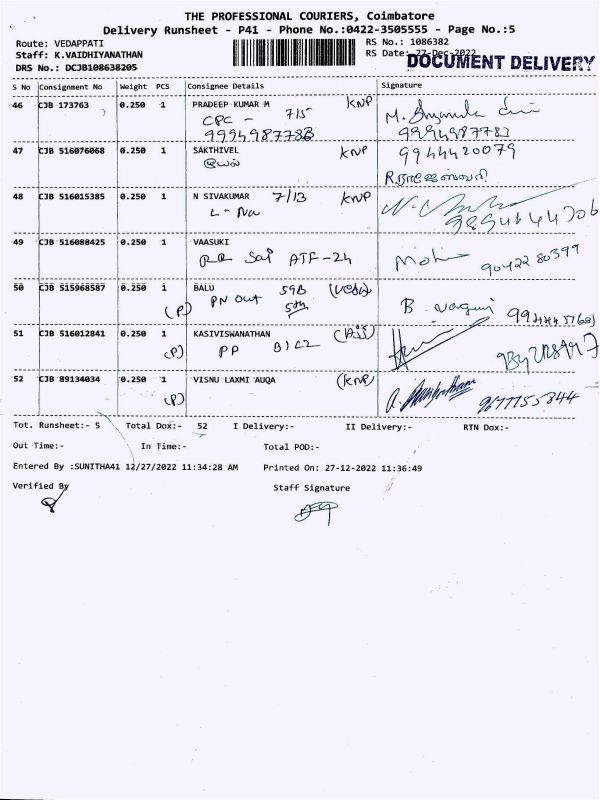 THE PROFESSIONAL COURIERS, Coimbatore
Delivery Runsheet - P41 - Phone No.:0422-3505555 - Page No.:5
Route: VEDAPPATI
RS No.: 1086382
Staff: K.VAIDHIYANATHAN
RS Date: 27-Dec-2022
DOCUMENT DELIVERY
DRS No.: DCJB108638205
S No Consignment No Weight PCS Consignee Details Signature
46 CJB 173763 0.250 1 PRADEEP KUMAR M KNP
CPC - 7/5
9994987783
9994987783
47 CJB 516076068 0.250 1 SAKTHIVEL KNP 9944420079
48 CJB 516015385 0.250 1 N SIVAKUMAR 7/13 KNP
49 CJB 516088425 0.250 1 VAASUKI
Sai ATF-24 9042280399
50 CJB 515968587 0.250 1 BALU 59B
(P) PN Out
51 CJB 516012841 0.250 1 KASIVISWANATHAN
(P) PP
52 CJB 89134034 0.250 1 VISNU LAXMI AUQA (KNP)
(P) 9677755844
Tot. Runsheet:- 5 Total Dox:- 52 I Delivery:- II Delivery:- RTN Dox:-
Out Time:- In Time:- Total POD:-
Entered By :SUNITHA41 12/27/2022 11:34:28 AM Printed On: 27-12-2022 11:36:49
Verified By Staff Signature